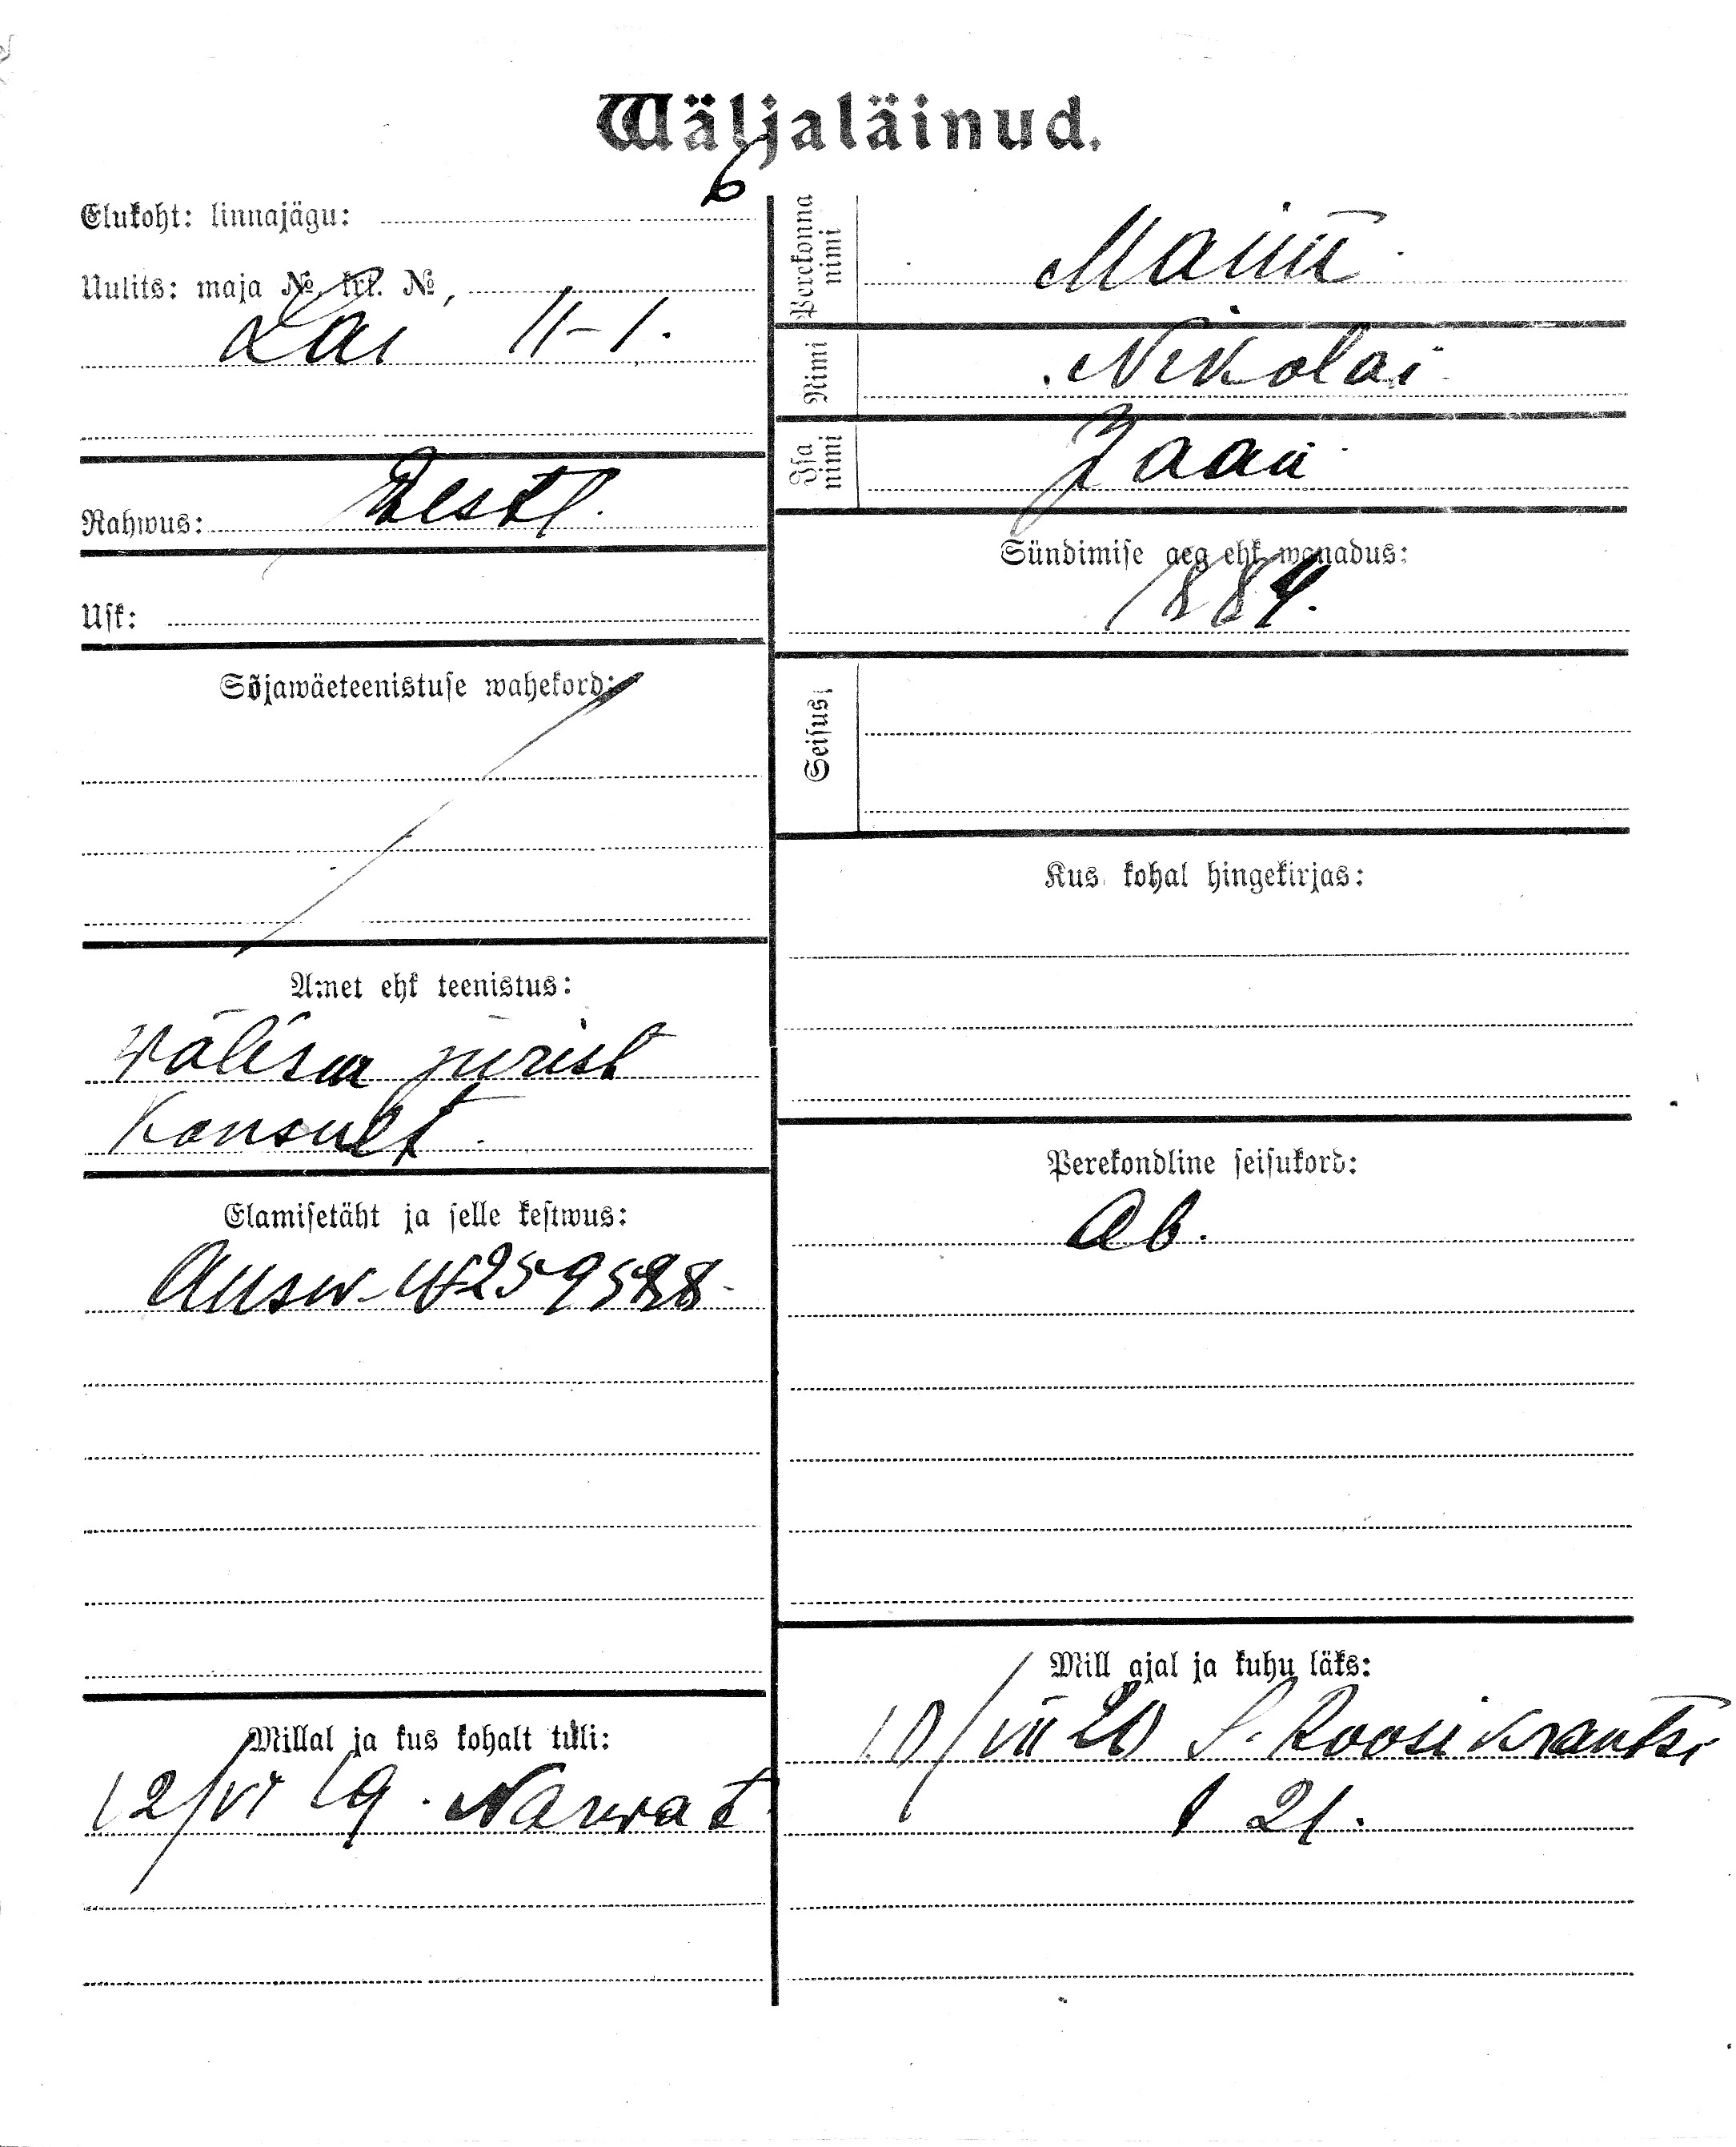 Wäljaläinud.
Elukoht: linnajägu: 6
Uulits: maja №, krt. №,
Lai 11-1.
Rahwus: Eestl.
Usk:
Sõjawäeteenistuse wahekord:
Amet ehk teenistus:
Wälism jurist
Konsult.
Elamisetäht ja selle kestwus:
Millal ja kus kohalt tuli:
12/VI 19. Narwast
Perekonna nimi
Nimi Nikolai
Isa nimi Jaan
Sündimise aeg ehk wanadus:
1884.
Seisus:
Kus kohal hingekirjas:
Perekondline seisukord:
Ab.
Mill ajal ja kuhu läks:
10/VII 20 S. Roosikrantsi
21.